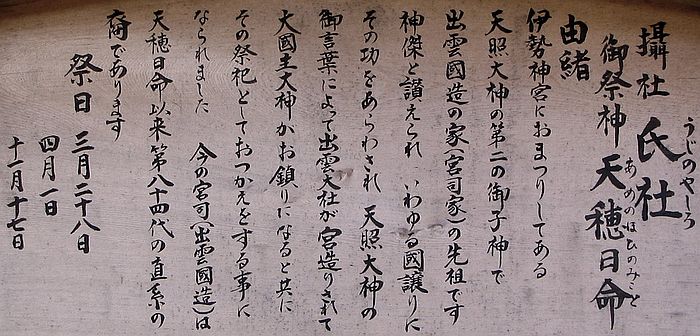 攝社 氏社
うじのやしろ
御祭神 天穂日命
あめのほひのみこと
由緒
伊勢神宮におまつりしてある
天照大神の第二の御子神で
出雲國造の家(宮司家)の先祖です
神傑と讃えられ いわゆる國譲りに
その功をあらわされ 天照大神の
御言葉によって出雲大社が宮造りされて
大國主大神がお鎮りになると共に
その祭祀としておつかえをする事に
なられました 今の宮司(出雲國造)は
天穂日命以来第八十四代の直系の
裔であります
祭日 三月二十八日
四月一日
十一月十七日